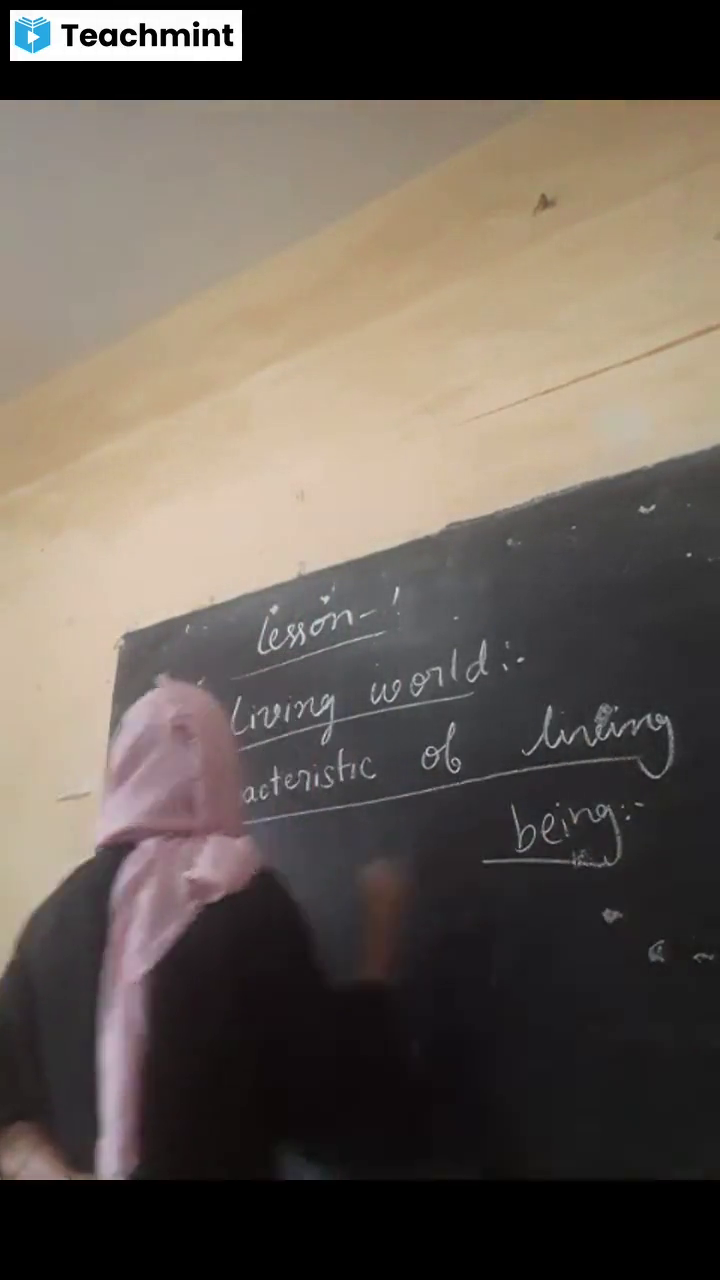 Teachmint
Lesson-1
living world:-
acteristic of living
being:-